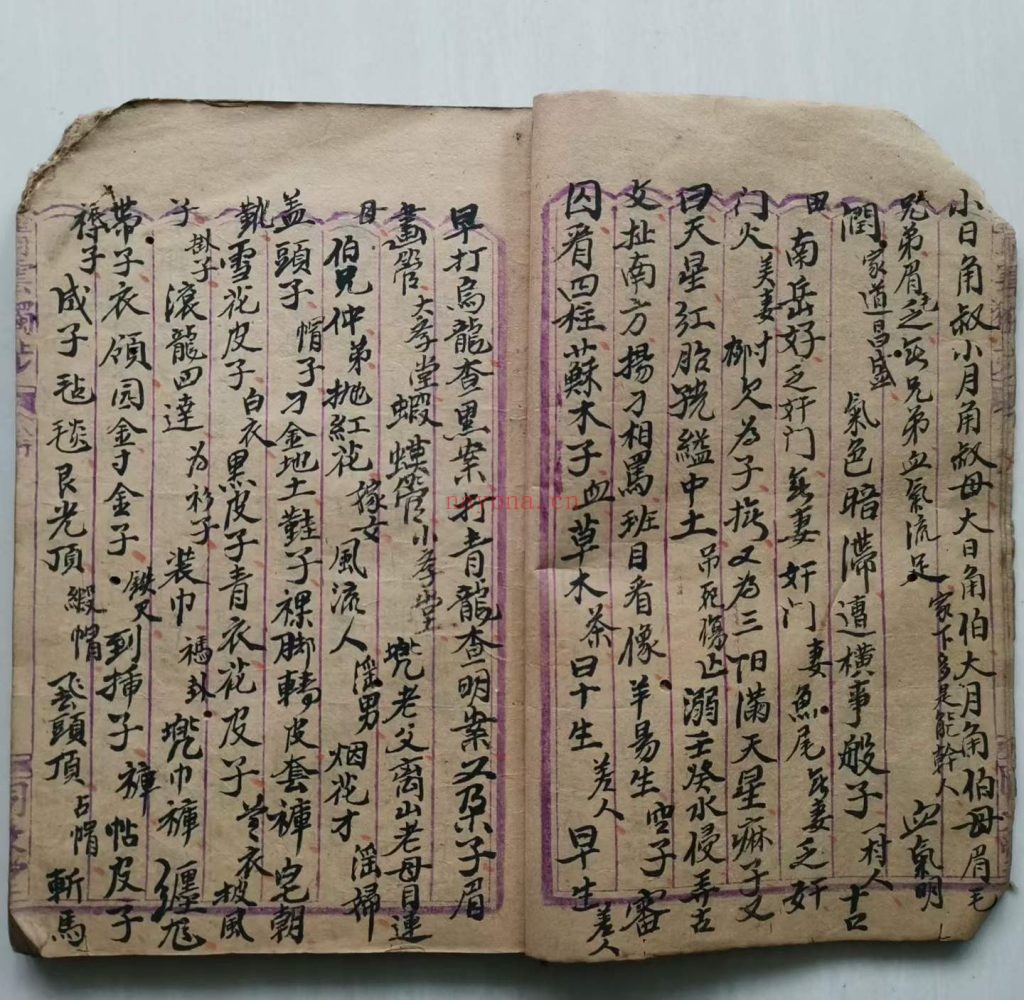 小日角叔小月角叔母大日角伯大月角伯母眉毛
兄弟眉毛乏無兄弟血氣流足家下多是能幹人血氣明
潤家道昌盛氣色暗滯遭橫事般子一村人古
田南岳好乏奸门無妻奸门妻魚尾無妻乏奸
门火美妻村柳欠為子又為三阳滿天星麻子又
曰天星红胎縊中土吊死傷亡溺壬癸水侵弄古
交扯南方揚刁相罵班目看像羊易生空子審
囚看四柱蘇木子血草木茶曰十生差人早生差人
早打烏龍查黑案打青龍查明案又朶子眉
畫管大孝堂蝦蟆管小孝堂兠老父离山老母目連
母伯兄仲弟拋紅花嫁女風流人淫男烟花才淫婦
盖頭子帽子刁金地土鞋子裸脚轎皮套褲皂朝
靴雪花皮子白衣黑皮子青衣花皮子衣披風
子卦子滾龍四達为衫子裝巾禡卦兠巾褲纏
帶子衣領园金子金子鉄叉到插子褲帖皮子
褥子成子毡毯艮光頂緞帽頭頂占帽斬馬
nayona.cn